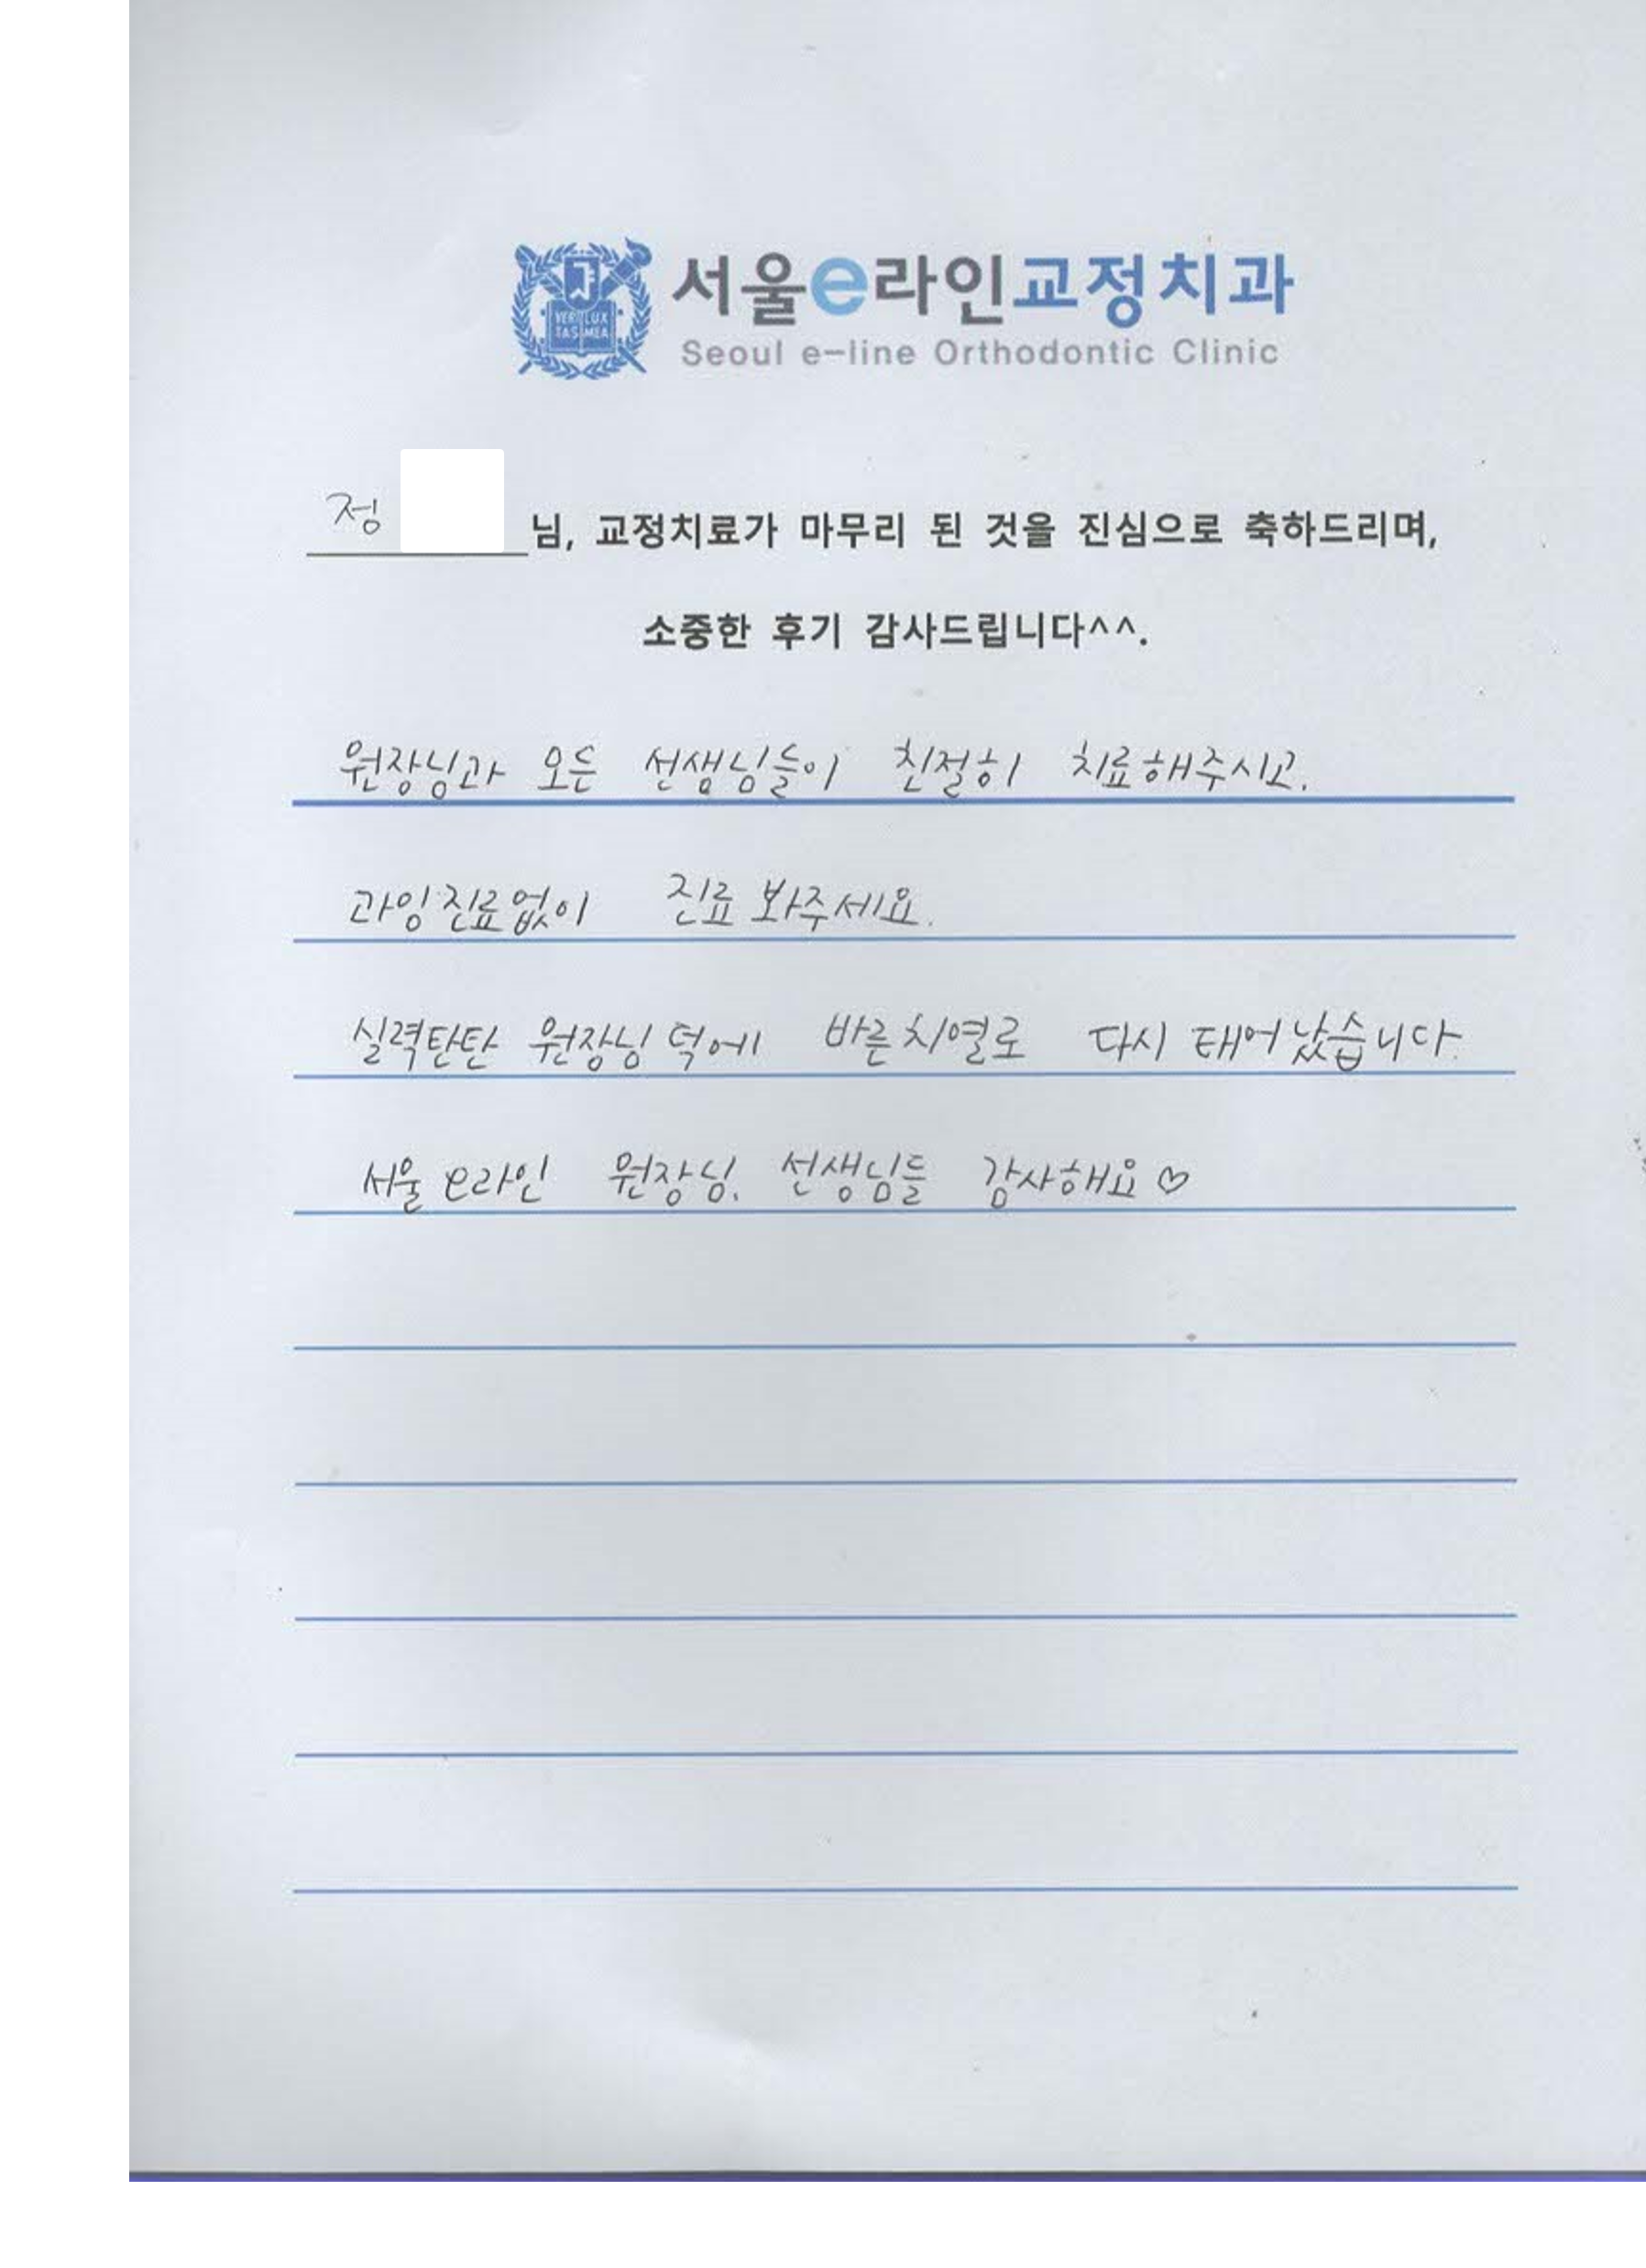 서울e라인교정치과
Seoul e-line Orthodontic Clinic
VERI LUX
TAS MEA
정 님, 교정치료가 마무리 된 것을 진심으로 축하드리며,
소중한 후기 감사드립니다^^.
원장님과 모든 선생님들이 친절히 치료해주시고.
과잉진료없이 진료 봐주세요.
실력탄탄 원장님 덕에 바른치열로 다시 태어났습니다.
서울 e라인 원장님. 선생님들 감사해요♡